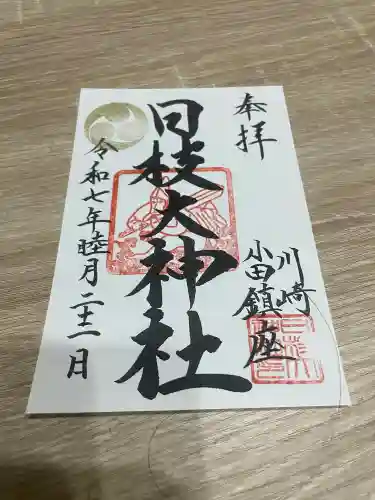 奉拝
川崎
小田鎮座
日枝大神社
令和七年睦月二十二日